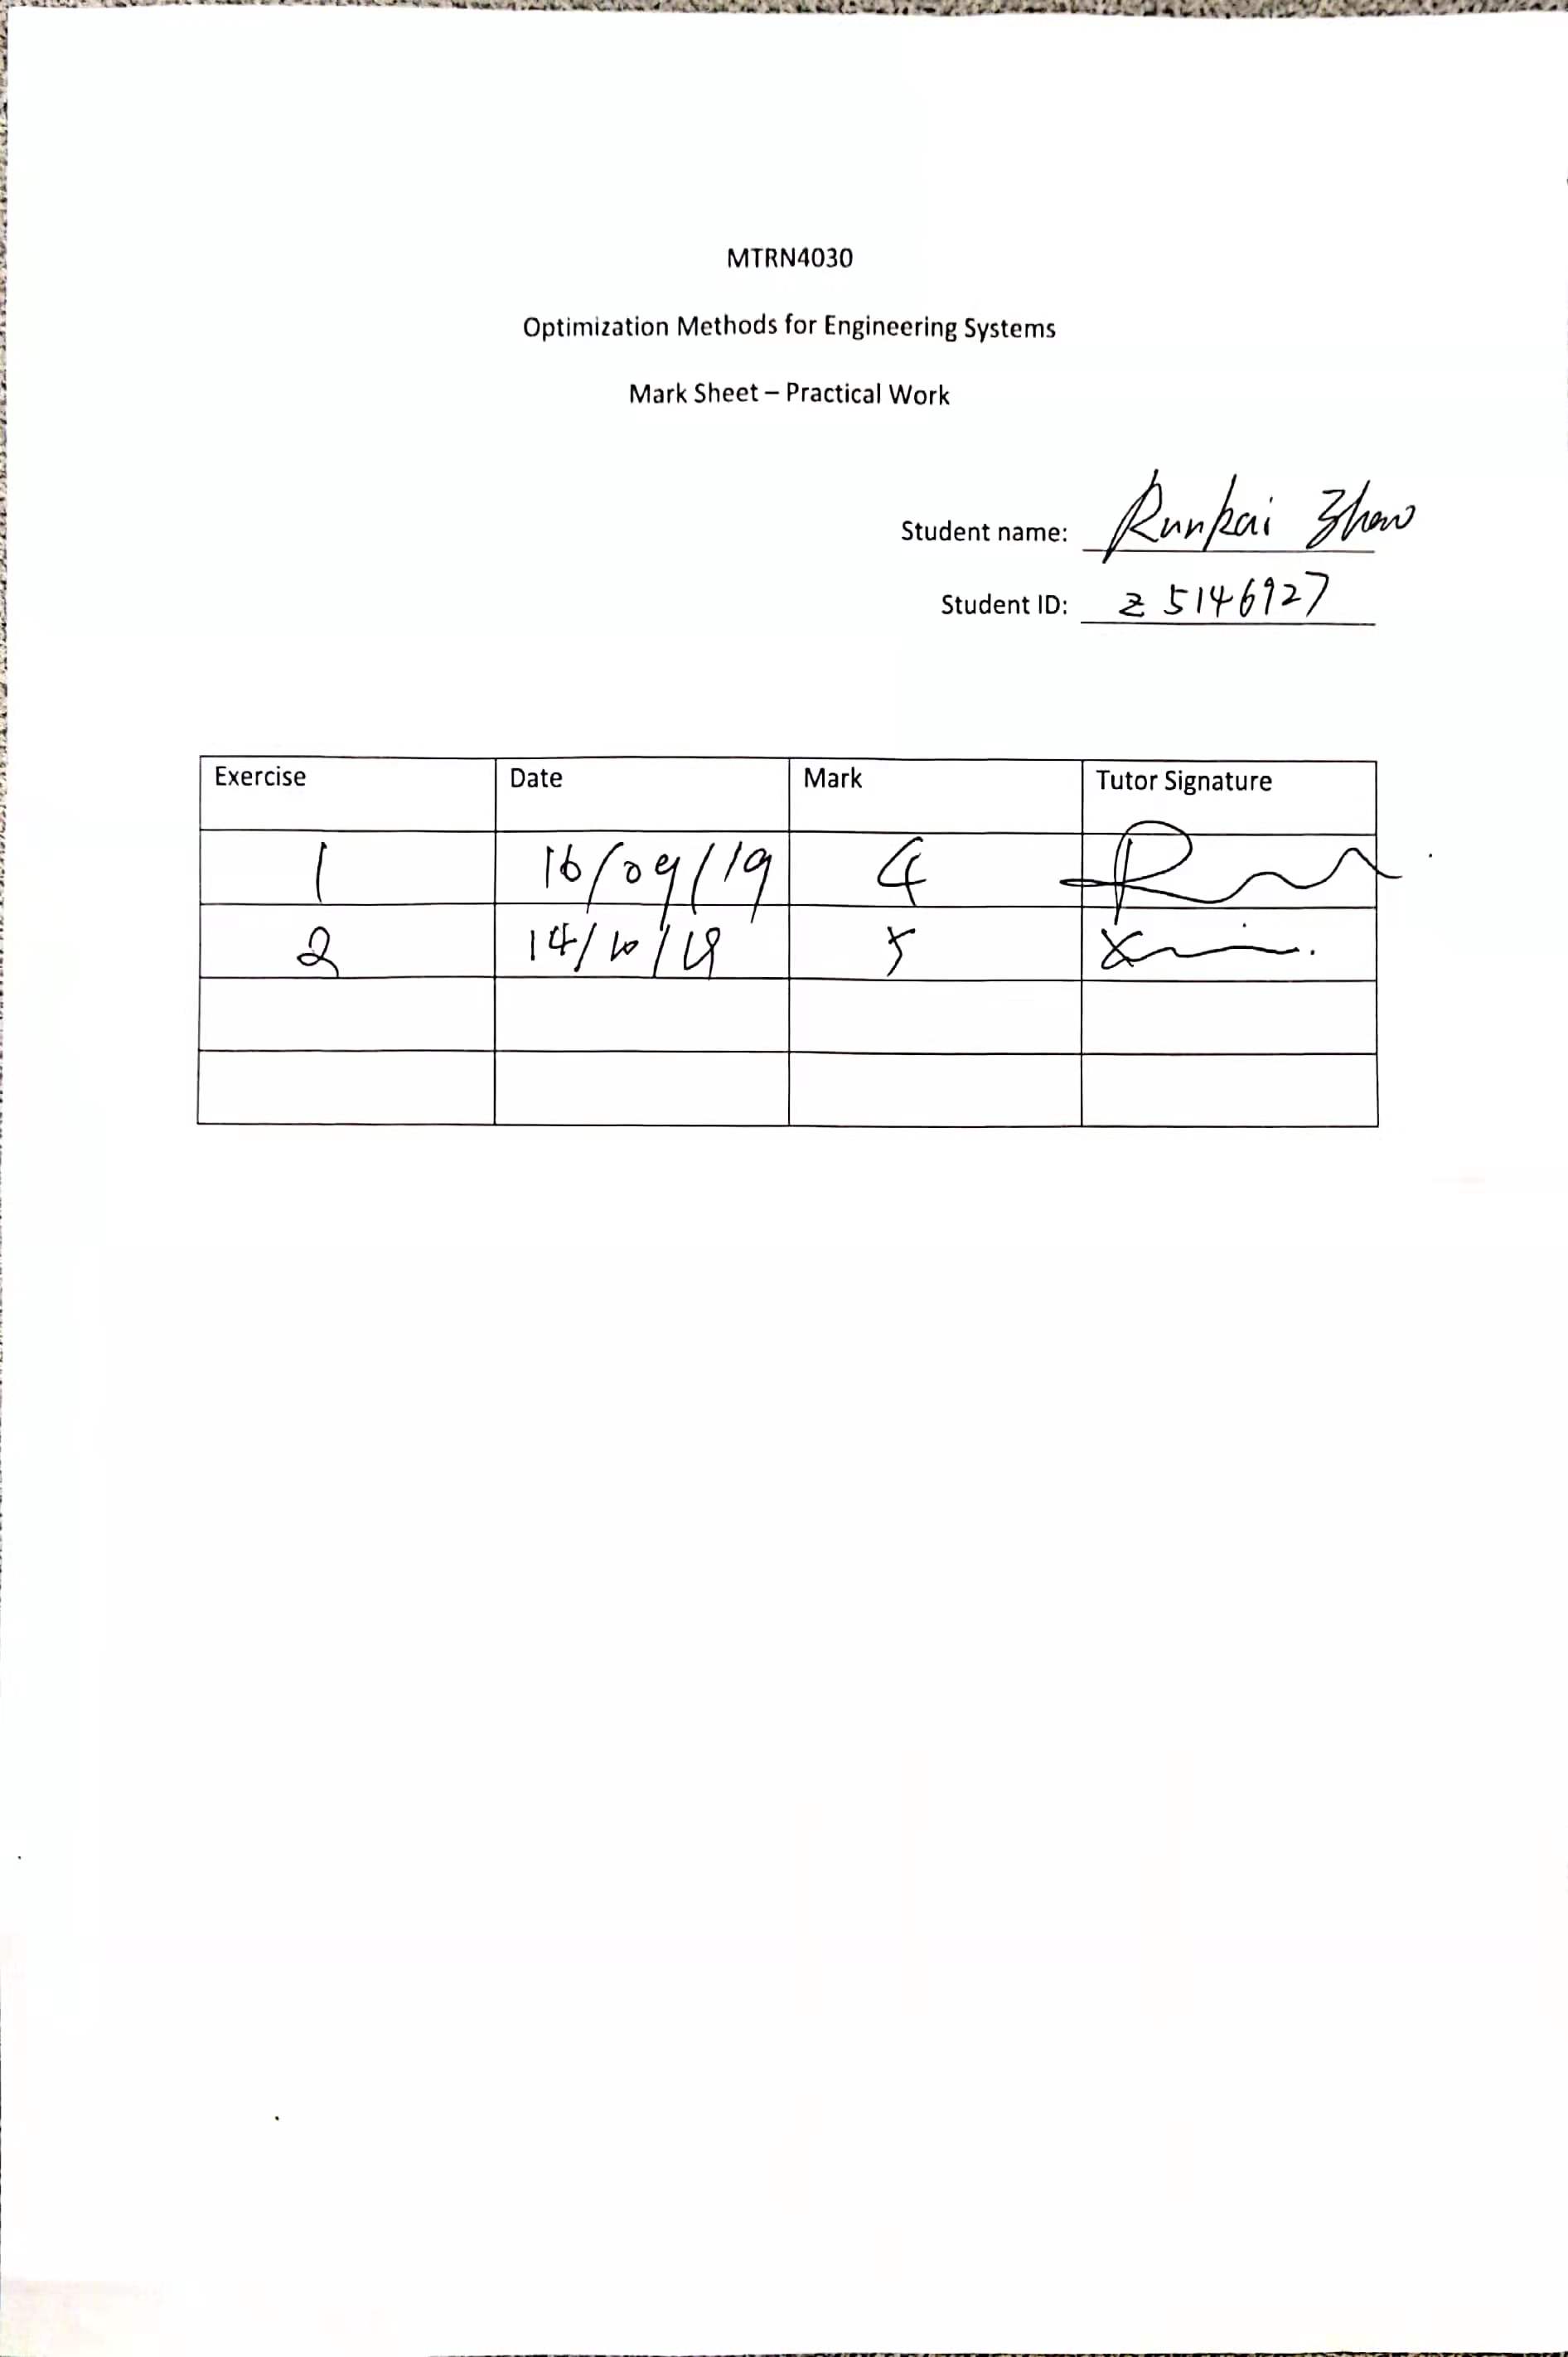 MTRN4030
Optimization Methods for Engineering Systems
Mark Sheet – Practical Work
Student name: Runkai Zhao
Student ID: z5146927
Exercise Date Mark Tutor Signature
1 16/09/19 4
2 14/10/19 5